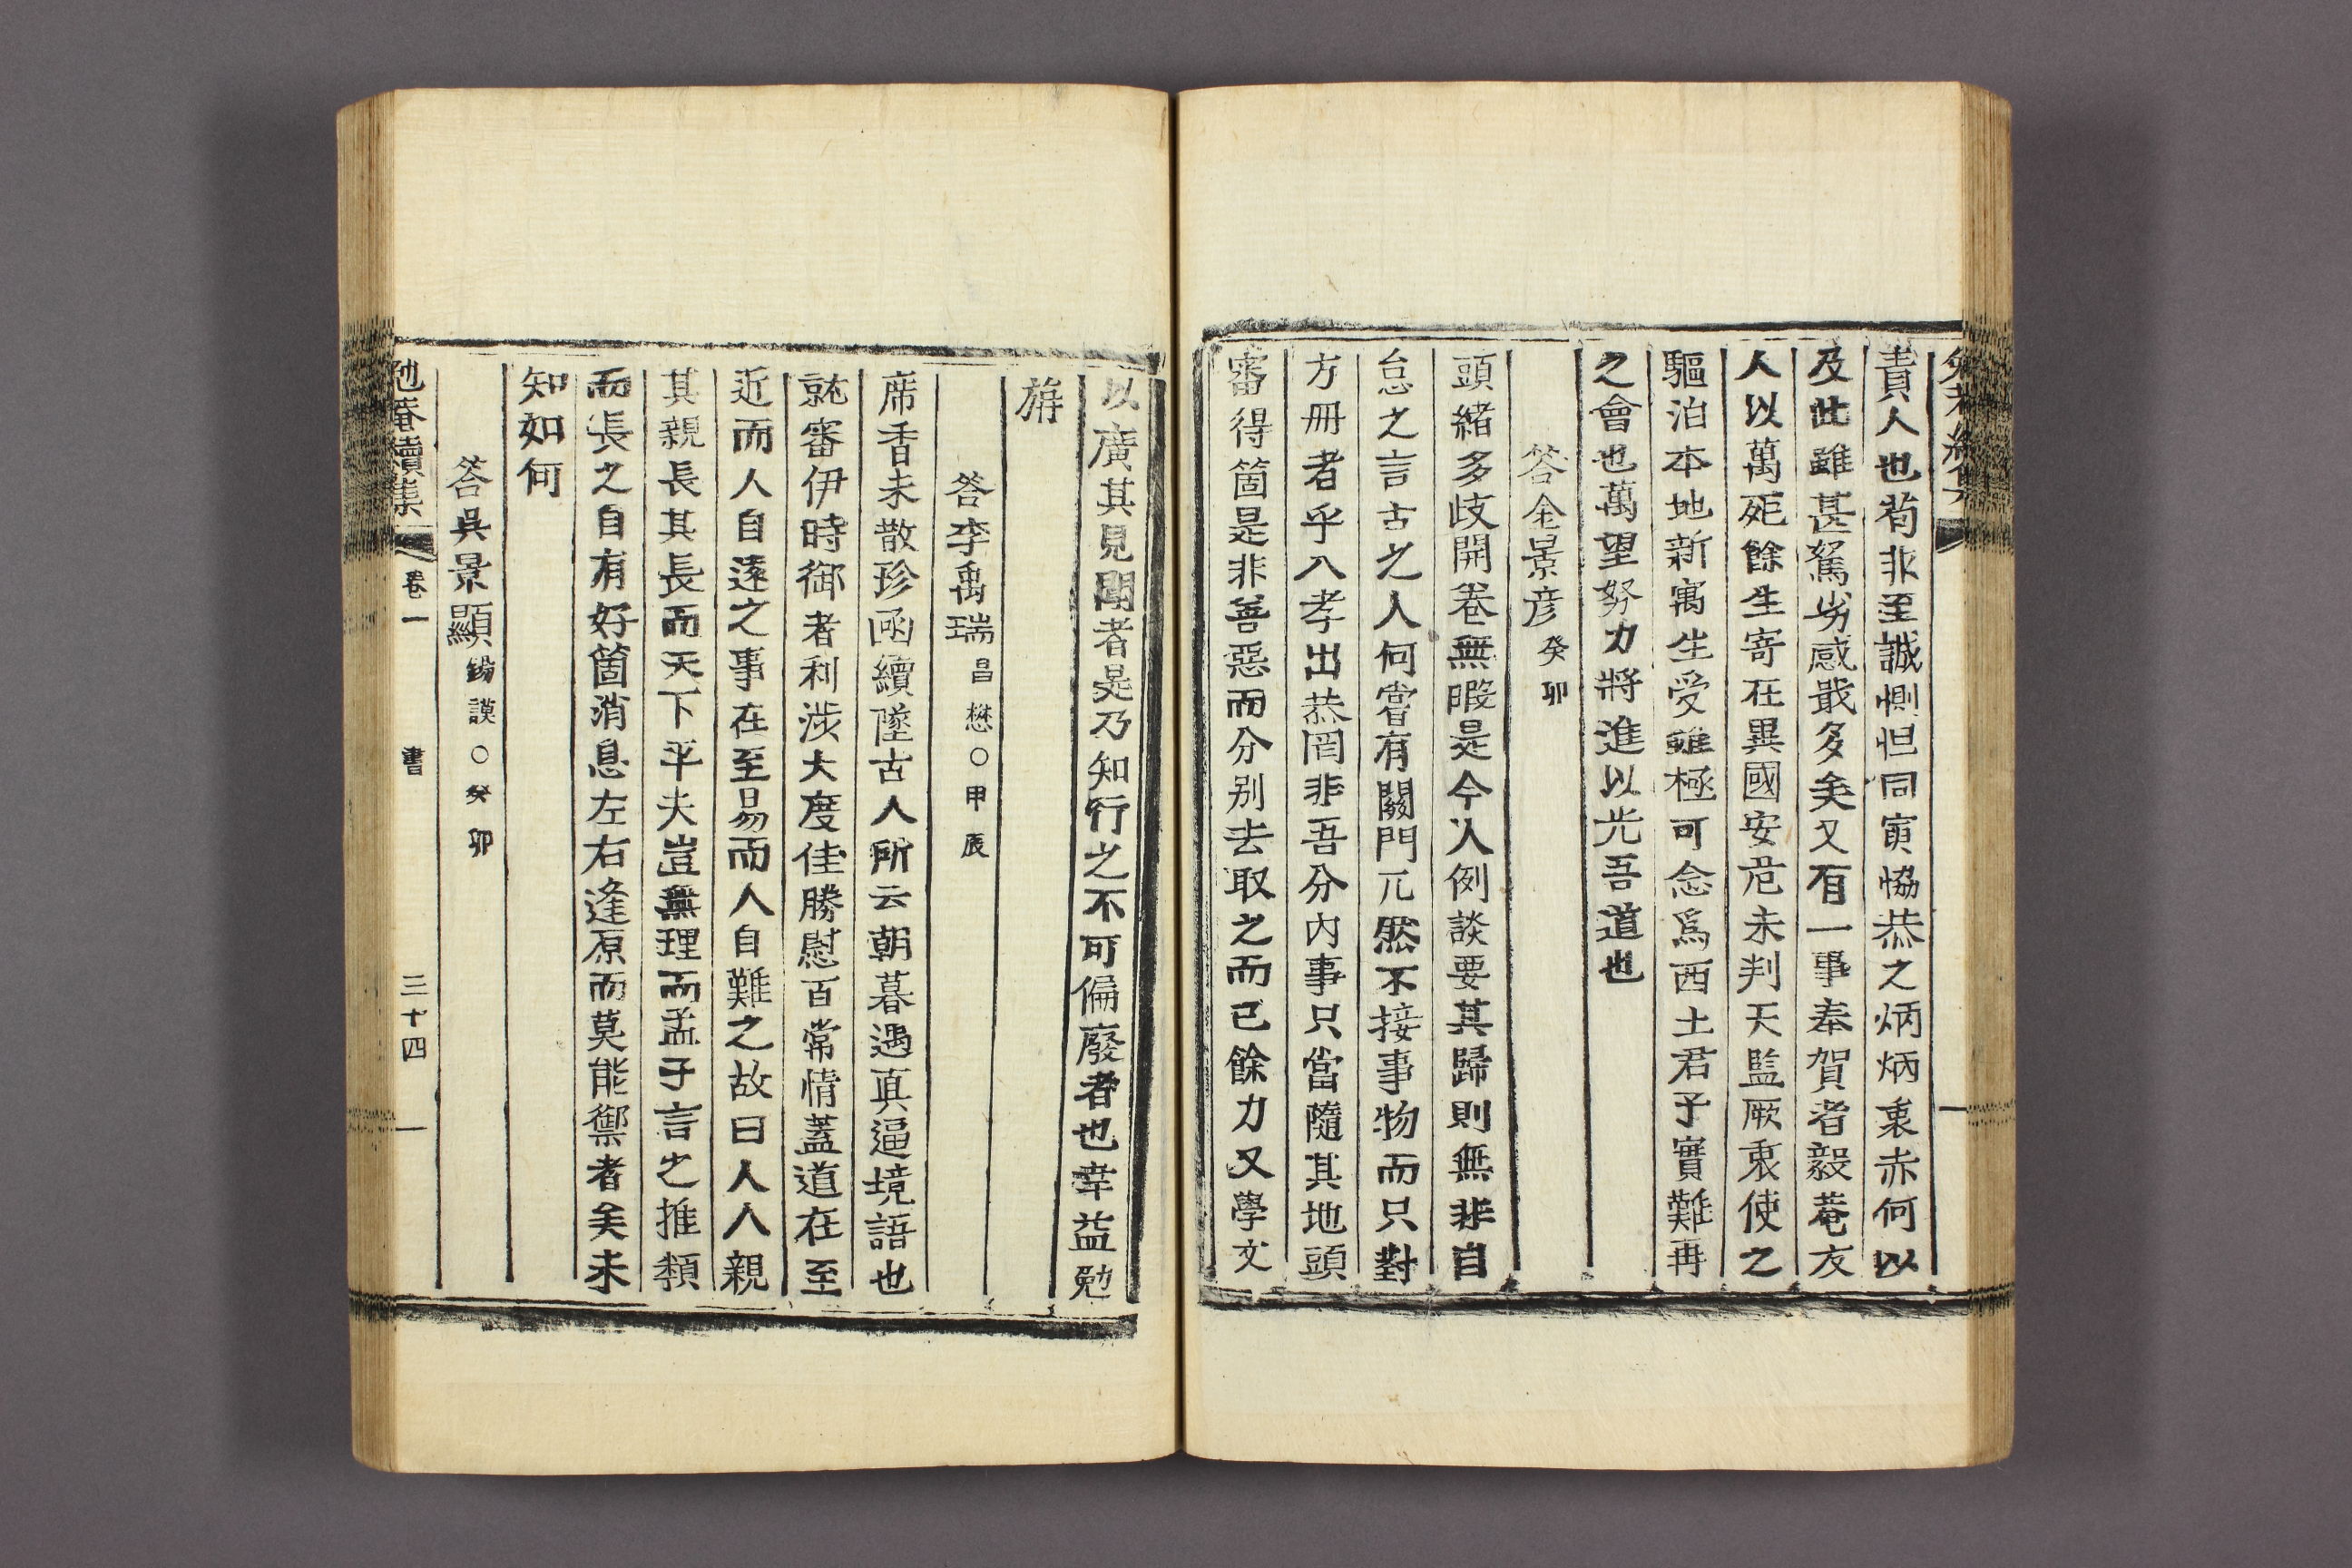 責人也苟非至誠惻怛同寅協恭之炳炳衷赤何以
及此雖甚駑劣感戢多矣又有一事奉賀者毅菴友
人以萬死餘生寄在異國安危未判天監厥衷使之
驅泊本地新寓生受雖極可念爲西土君子實難再
之會也萬望努力將進以光吾道也
答金景彦癸卯
頭緖多歧開卷無暇是今人例談要其歸則無非自
怠之言古之人何嘗有關門兀然不接事物而只對
方冊者乎入孝出恭罔非吾分內事只當隨其地頭
審得箇是非善惡而分別去取之而已餘力又學文
以廣其見聞者是乃知行之不可偏廢者也幸益勉
旃
答李禹瑞昌懋○甲辰
席香未散珍函續墜古人所云朝暮遇眞逼境語也
就審伊時御者利涉大度佳勝慰百常情蓋道在至
近而人自遠之事在至易而人自難之故曰人人親
其親長其長而天下平夫豈無理而孟子言之推類
而長之自有好箇消息左右逢原而莫能禦者矣未
知如何
答吳景顯錫謨○癸卯
勉菴續集 卷一 書 三十四